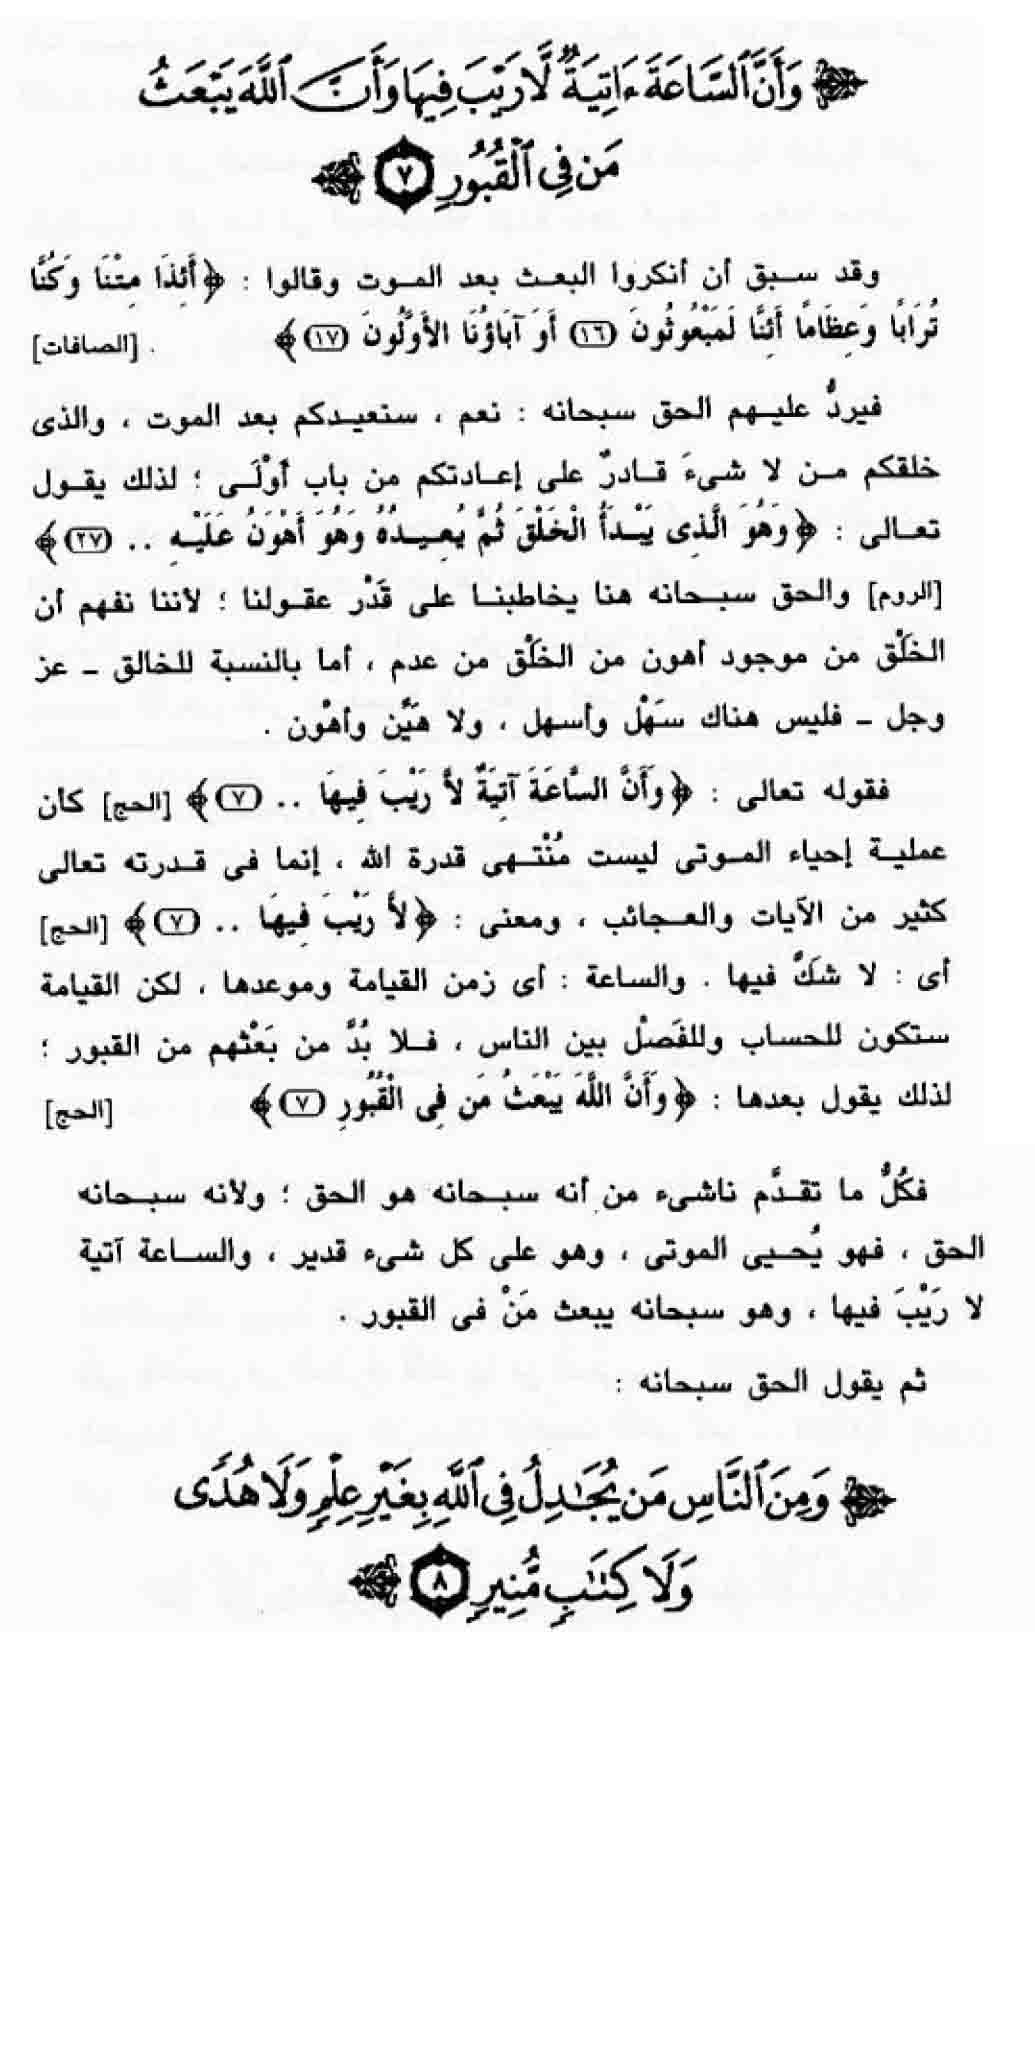 ﴿ وَأَنَّ ٱلسَّاعَةَ ءَاتِيَةٌ لَّا رَيْبَ فِيهَا وَأَنَّ ٱللَّهَ يَبْعَثُ
مَن فِي ٱلْقُبُورِ ٧ ﴾
وقد سبق أن أنكروا البعث بعد الموت وقالوا : ﴿ أَئِذَا مِتْنَا وَكُنَّا
تُرَابًا وَعِظَامًا أَئِنَّا لَمَبْعُوثُونَ (١٦) أَوَ آبَاؤُنَا الأَوَّلُونَ (١٧) ﴾ . [الصافات]
فيردُّ عليهم الحق سبحانه : نعم ، سنعيدكم بعد الموت ، والذى
خلقكم من لا شىءَ قادرٌ على إعادتكم من باب أَوْلَى ؛ لذلك يقول
تعالى : ﴿ وَهُوَ الَّذِى يَبْدَأُ الْخَلْقَ ثُمَّ يُعِيدُهُ وَهُوَ أَهْوَنُ عَلَيْهِ .. (٢٧) ﴾
[الروم] والحق سبحانه هنا يخاطبنا على قَدْر عقولنا ؛ لأننا نفهم أن
الخَلْق من موجود أهون من الخَلْق من عدم ، أما بالنسبة للخالق - عز
وجل - فليس هناك سَهْل وأسهل ، ولا هَيِّن وأهْون .
فقوله تعالى : ﴿ وَأَنَّ السَّاعَةَ آتِيَةٌ لاَّ رَيْبَ فِيهَا .. (٧) ﴾ [الحج] كأن
عملية إحياء الموتى ليست مُنْتهى قدرة الله ، إنما فى قدرته تعالى
كثير من الآيات والعجائب ، ومعنى : ﴿ لاَّ رَيْبَ فِيهَا .. (٧) ﴾ [الحج]
أى : لا شكَّ فيها . والساعة : أى زمن القيامة وموعدها ، لكن القيامة
ستكون للحساب وللفَصْل بين الناس ، فلا بُدَّ من بَعْثهم من القبور ؛
لذلك يقول بعدها : ﴿ وَأَنَّ اللَّهَ يَبْعَثُ مَن فِى الْقُبُورِ (٧) ﴾ [الحج]
فكُلُّ ما تقدَّم ناشىء من أنه سبحانه هو الحق ؛ ولأنه سبحانه
الحق ، فهو يُحيى الموتى ، وهو على كل شىء قدير ، والساعة آتية
لا رَيْبَ فيها ، وهو سبحانه يبعث مَنْ فى القبور .
ثم يقول الحق سبحانه :
﴿ وَمِنَ ٱلنَّاسِ مَن يُجَٰدِلُ فِي ٱللَّهِ بِغَيْرِ عِلْمٍ وَلَا هُدًى
وَلَا كِتَٰبٍ مُّنِيرٍ ٨ ﴾